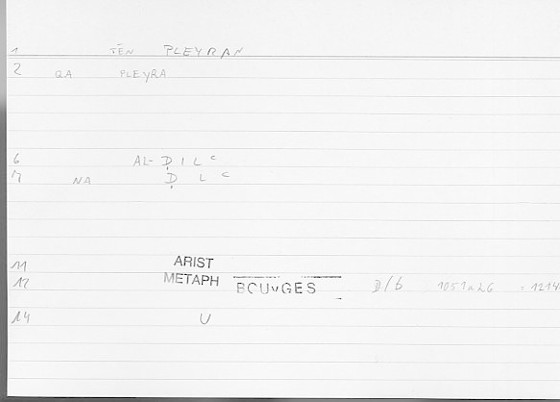 1 TĒN PLEYRAN
2 QA PLEYRA
6 AL-ḌILᶜ
7 NA ḌLᶜ
11 ARIST
12 METAPH BOUYGES D/b 1051a26 = 1214
14 U